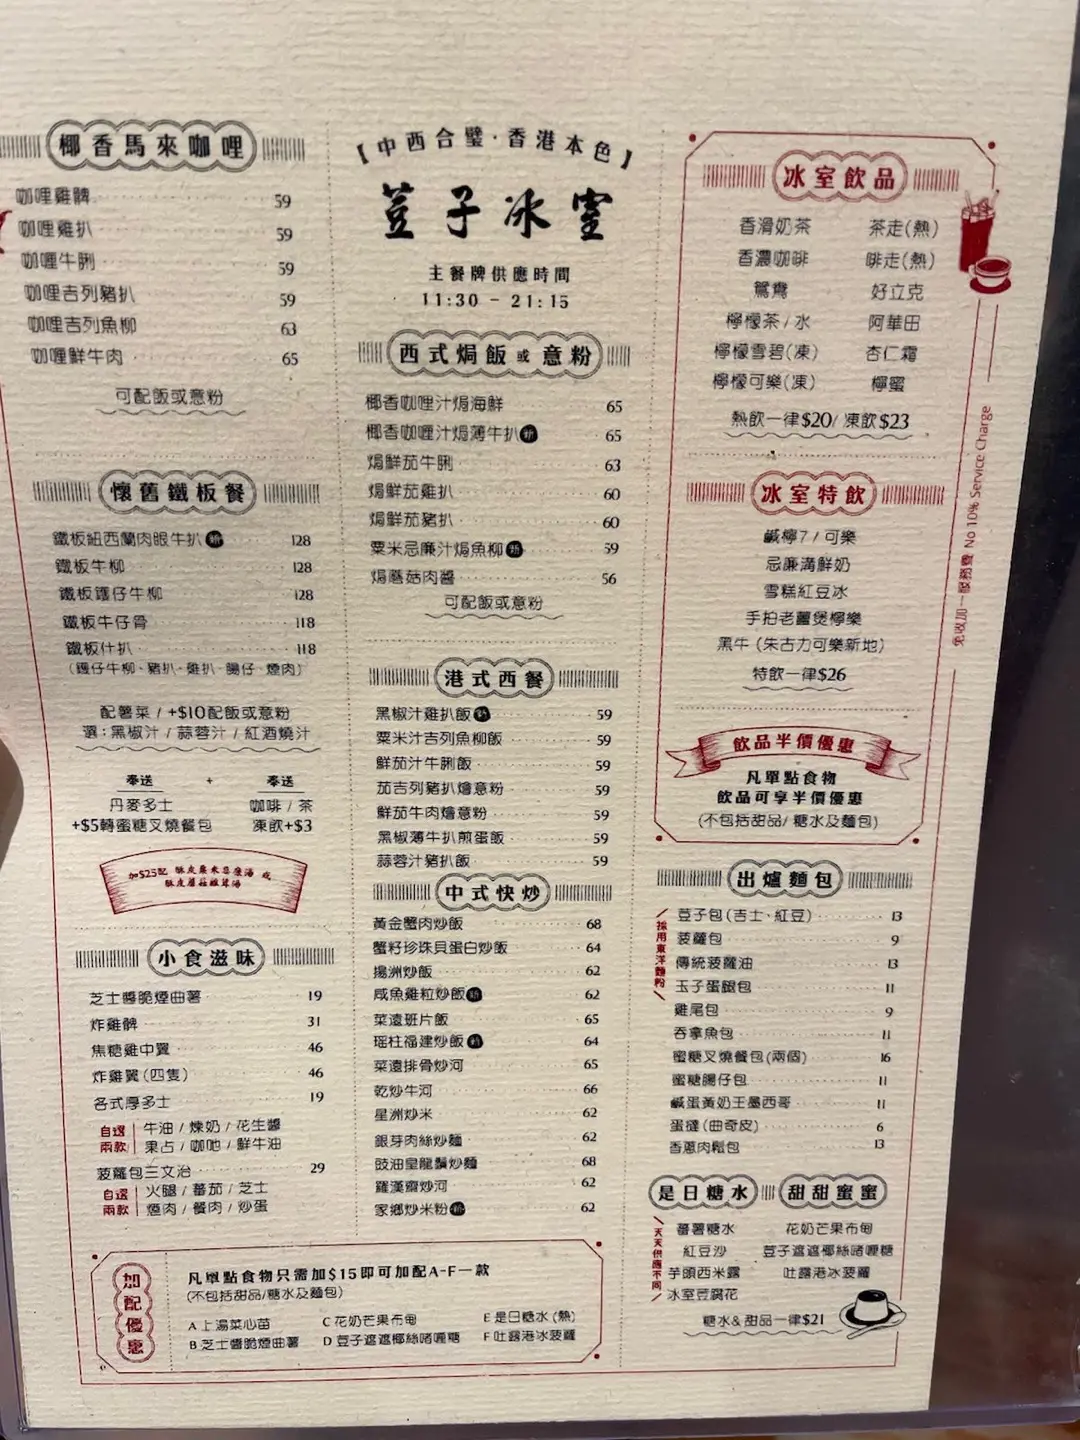 椰香馬來咖喱
咖哩雞髀 59
咖哩雞扒 59
咖喱牛脷 59
咖哩吉列豬扒 59
咖哩吉列魚柳 63
咖喱鮮牛肉 65
可配飯或意粉
懷舊鐵板餐
鐵板紐西蘭肉眼牛扒 新 128
鐵板牛柳 128
鐵板鑊仔牛柳 128
鐵板牛仔骨 118
鐵板什扒 118
(鑊仔牛柳、豬扒、雞扒、腸仔、煙肉)
配薯菜 / +$10配飯或意粉
選：黑椒汁 / 蒜蓉汁 / 紅酒燒汁
奉送 + 奉送
丹麥多士 咖啡 / 茶
+$5轉蜜糖叉燒餐包 凍飲+$3
加$25配 酥皮粟米忌廉湯 或
酥皮蘑菇雞茸湯
小食滋味
芝士醬脆煙曲薯 19
炸雞髀 31
焦糖雞中翼 46
炸雞翼(四隻) 46
各式厚多士 19
自選兩款 牛油 / 煉奶 / 花生醬
果占 / 咖吔 / 鮮牛油
菠蘿包三文治 29
自選兩款 火腿 / 蕃茄 / 芝士
煙肉 / 餐肉 / 炒蛋
【中西合璧·香港本色】
荳子冰室
主餐牌供應時間
11:30 - 21:15
西式焗飯或意粉
椰香咖哩汁焗海鮮 65
椰香咖喱汁焗薄牛扒 新 65
焗鮮茄牛脷 63
焗鮮茄雞扒 60
焗鮮茄豬扒 60
粟米忌廉汁焗魚柳 新 59
焗蘑菇肉醬 56
可配飯或意粉
港式西餐
黑椒汁雞扒飯 新 59
粟米汁吉列魚柳飯 59
鮮茄汁牛脷飯 59
茄吉列豬扒燴意粉 59
鮮茄牛肉燴意粉 59
黑椒薄牛扒煎蛋飯 59
蒜蓉汁豬扒飯 59
中式快炒
黃金蟹肉炒飯 68
蟹籽珍珠貝蛋白炒飯 64
揚洲炒飯 62
咸魚雞粒炒飯 新 62
菜遠班片飯 65
瑤柱福建炒飯 新 64
菜遠排骨炒河 65
乾炒牛河 66
星洲炒米 62
銀芽肉絲炒麵 62
豉油皇龍鬚炒麵 68
羅漢齋炒河 62
家鄉炒米粉 新 62
冰室飲品
香滑奶茶 茶走(熱)
香濃咖啡 啡走(熱)
鴛鴦 好立克
檸檬茶 / 水 阿華田
檸檬雪碧(凍) 杏仁霜
檸檬可樂(凍) 檸蜜
熱飲一律$20/ 凍飲$23
冰室特飲
鹹檸7 / 可樂
忌廉溝鮮奶
雪糕紅豆冰
手拍老薑煲檸樂
黑牛 (朱古力可樂新地)
特飲一律$26
飲品半價優惠
凡單點食物
飲品可享半價優惠
(不包括甜品/ 糖水及麵包)
免收加一服務費 No 10% Service Charge
出爐麵包
採用東洋麵粉
荳子包(吉士、紅豆) 13
菠蘿包 9
傳統菠蘿油 13
玉子蛋腿包 11
雞尾包 9
吞拿魚包 11
蜜糖叉燒餐包(兩個) 16
蜜糖腸仔包 11
鹹蛋黃奶王墨西哥 11
蛋撻(曲奇皮) 6
香蔥肉鬆包 13
是日糖水 甜甜蜜蜜
天天供應不同
蕃薯糖水 花奶芒果布甸
紅豆沙 荳子遮遮椰絲啫喱糖
芋頭西米露 吐露港冰菠蘿
冰室豆腐花
糖水&甜品一律$21
加配優惠
凡單點食物只需加$15即可加配A-F一款
(不包括甜品/糖水及麵包)
A 上湯菜心苗 C 花奶芒果布甸 E 是日糖水 (熱)
B 芝士醬脆煙曲薯 D 荳子遮遮椰絲啫喱糖 F 吐露港冰菠蘿